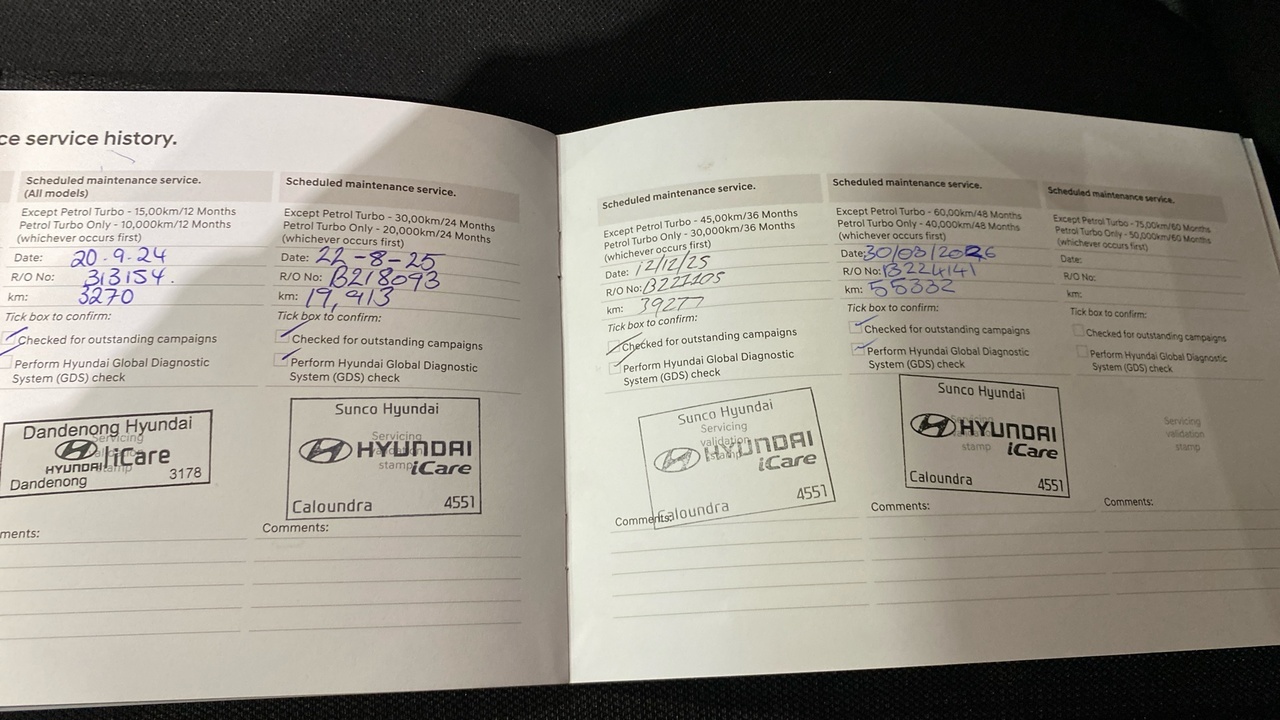 ce service history.
Scheduled maintenance service.
(All models)
Except Petrol Turbo - 15,00km/12 Months
Petrol Turbo Only - 10,000km/12 Months
(whichever occurs first)
Date: 20.9.24
R/O No: 313154.
km: 3270
Tick box to confirm:
Checked for outstanding campaigns
Perform Hyundai Global Diagnostic
System (GDS) check
Dandenong Hyundai
Servicing
HYUNDAI iCare
Dandenong 3178
ments:
Scheduled maintenance service.
Except Petrol Turbo - 30,00km/24 Months
Petrol Turbo Only - 20,000km/24 Months
(whichever occurs first)
Date: 22-8-25
R/O No: B218093
km: 19,913
Tick box to confirm:
Checked for outstanding campaigns
Perform Hyundai Global Diagnostic
System (GDS) check
Sunco Hyundai
Servicing
HYUNDAI
stamp iCare
Caloundra 4551
Comments:
Scheduled maintenance service.
Except Petrol Turbo - 45,00km/36 Months
Petrol Turbo Only - 30,000km/36 Months
(whichever occurs first)
Date: 12/12/25
R/O No: B221105
km: 39277
Tick box to confirm:
Checked for outstanding campaigns
Perform Hyundai Global Diagnostic
System (GDS) check
Sunco Hyundai
Servicing
validation
HYUNDAI
stamp
iCare
Caloundra 4551
Comments:
Scheduled maintenance service.
Except Petrol Turbo - 60,00km/48 Months
Petrol Turbo Only - 40,000km/48 Months
(whichever occurs first)
Date: 30/03/2026
R/O No: B224141
km: 55332
Tick box to confirm:
Checked for outstanding campaigns
Perform Hyundai Global Diagnostic
System (GDS) check
Sunco Hyundai
Servicing
HYUNDAI
stamp iCare
Caloundra 4551
Comments:
Scheduled maintenance service.
Except Petrol Turbo - 75,00km/60 Months
Petrol Turbo Only - 50,000km/60 Months
(whichever occurs first)
Date:
R/O No:
km:
Tick box to confirm:
Checked for outstanding campaigns
Perform Hyundai Global Diagnostic
System (GDS) check
Servicing
validation
stamp
Comments: